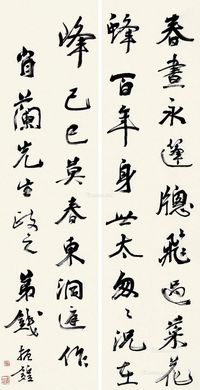 春晝永蓬牕飛過菜花
蜂百年身世太匆匆況在
峰己巳莫春東洞庭作
肖蘭先生政之弟錢振鍠